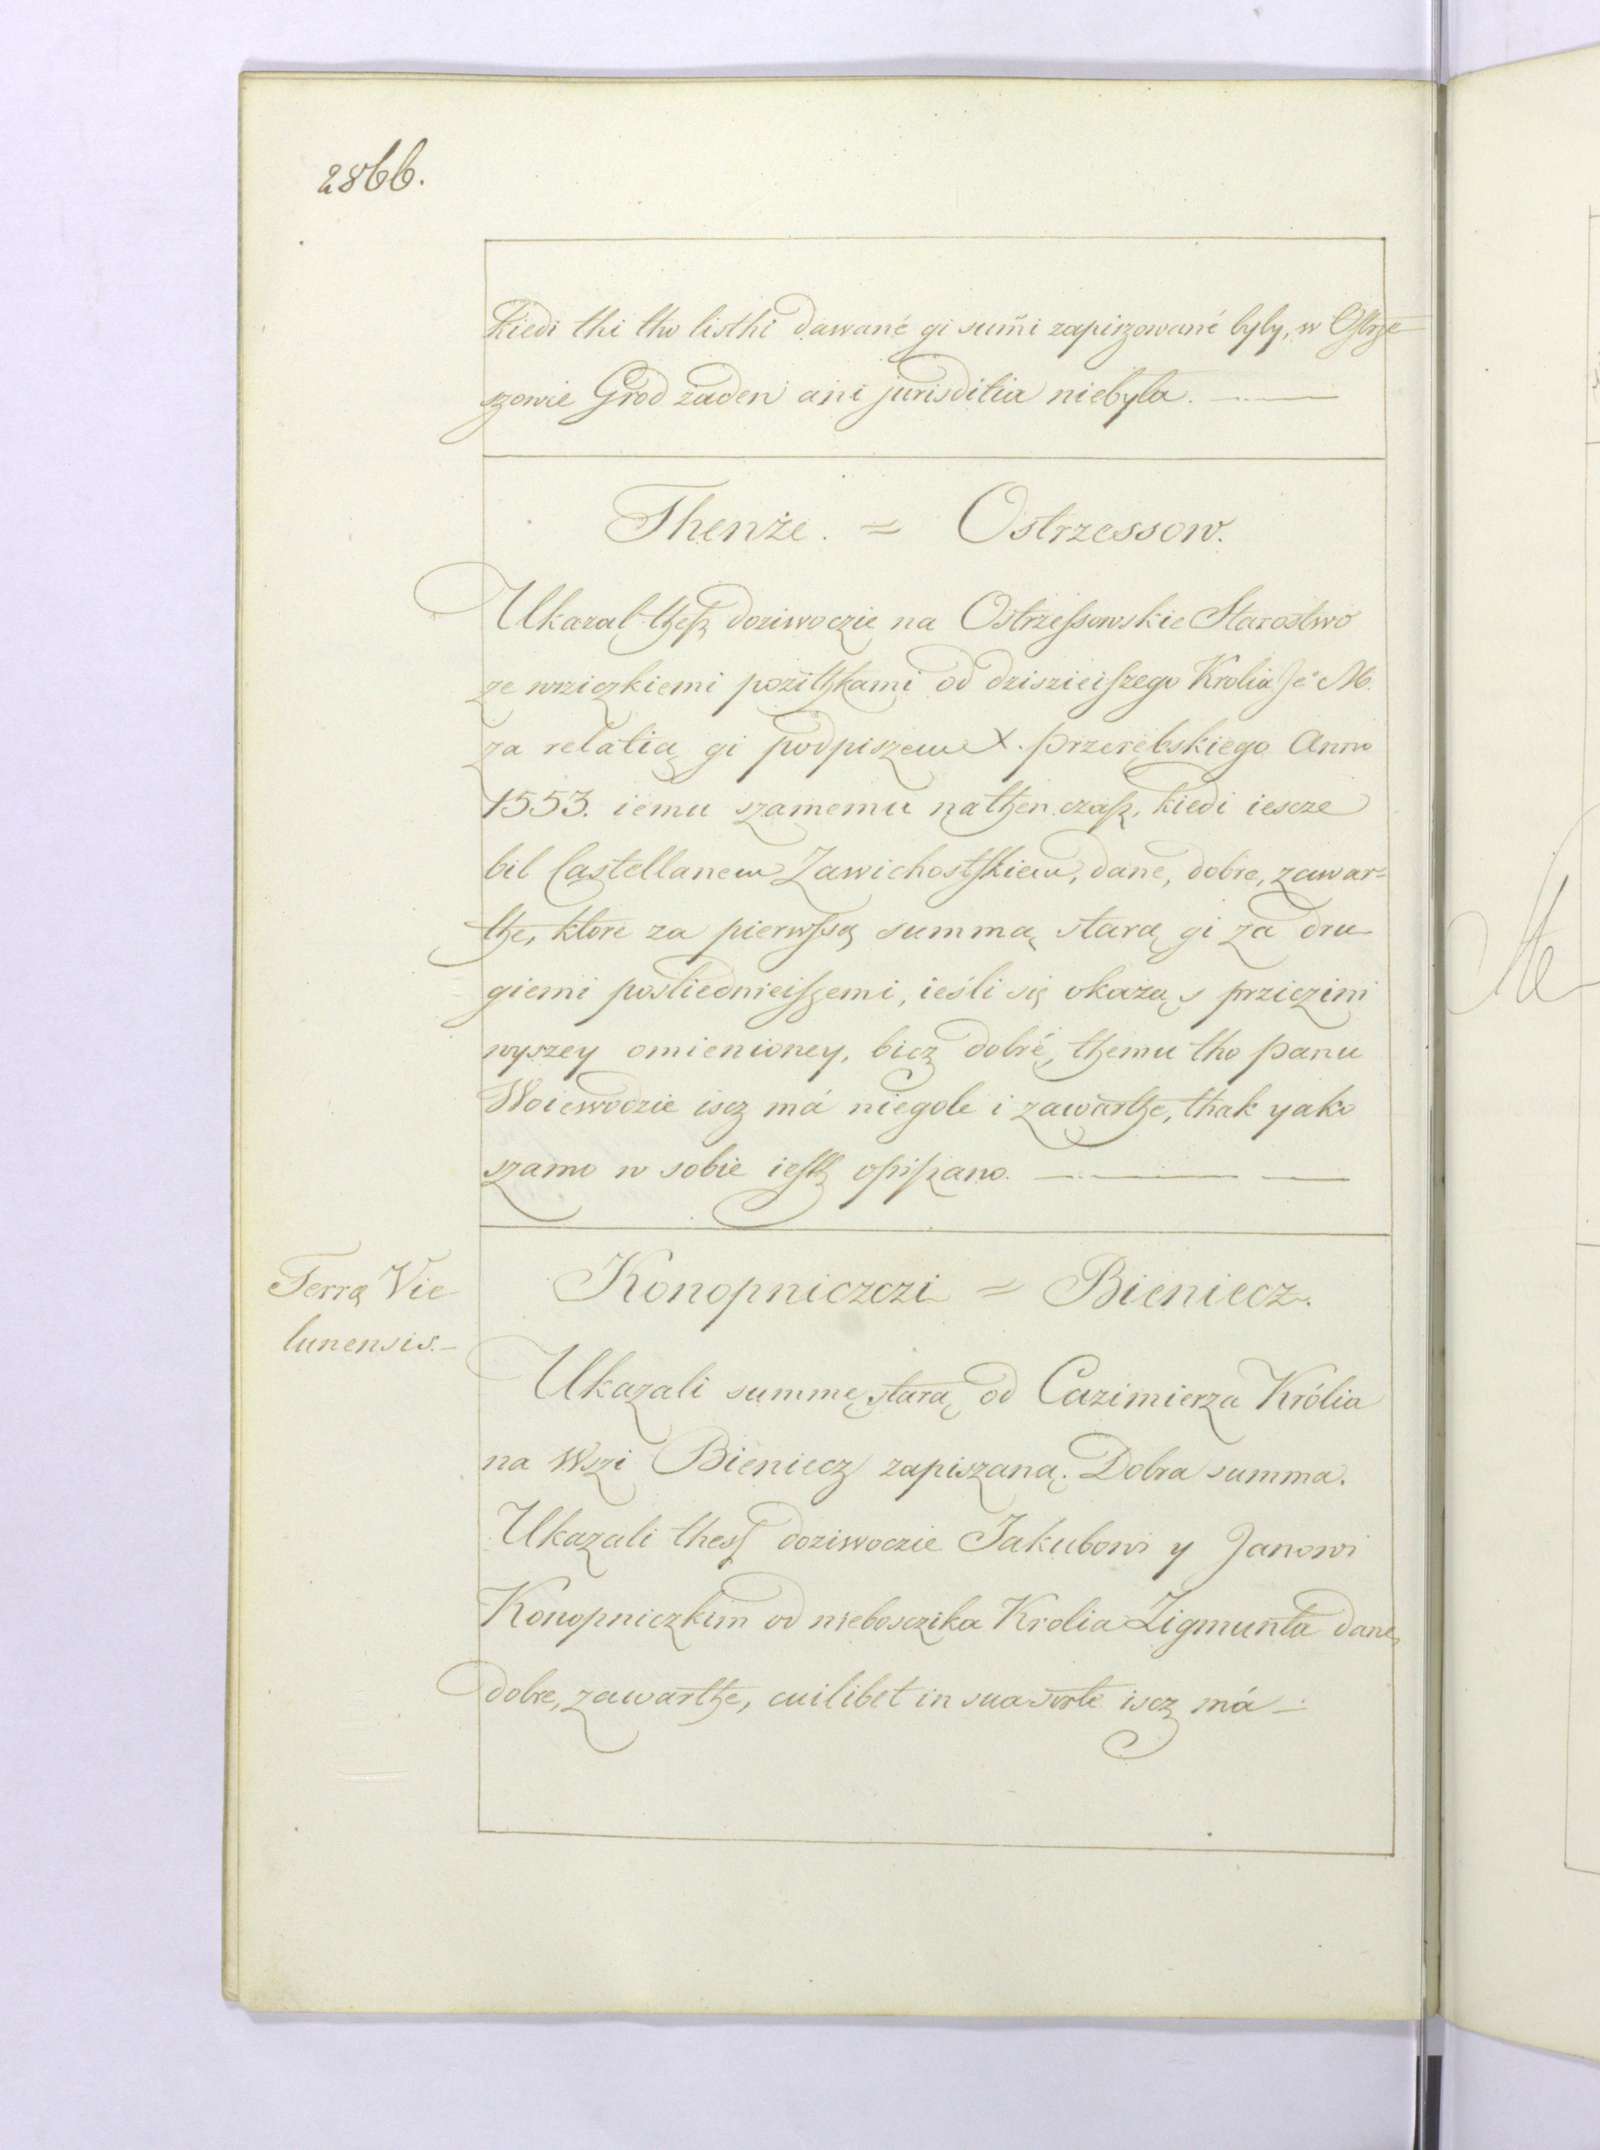 2866.
kiedi thi tho listhi dawané gi sum̃i zapiszowané byly, w Ostrze-
szowie Grod żaden ani jurisditia niebyla.
Thenże. = Ostrzessow.
Ukazal thesz doziwoczie na Ostrzessowskie Starostwo
ze wsziczkiemi pozithkami od dzisziejszego Krolia Je° M.
za relatią gi podpiszem X. Przerębskiego Anno
1553. iemu szamemu nathen czasz, kiedi iescze
bil Castellanem Zawichostskiem, dane, dobre, zawar-
the, ktore za pierwssą summą starą gi za dru-
giemi posliednieiszemi, ieśli się okażą s prziczini
wyszey omienioney, bicz dobré, themu tho Panu
Woiewodzie iscz má niegole i zawarthe, thak yako
szamo w sobie iesth opiszano.
Terrą Vie-
lunensis.
Konopniczczi = Bieniecz.
Ukazali summę starą od Cazimierza Królia
na Wszi Bieniecz zapiszaną. Dobra summa.
Ukazali thesz doziwoczie Jakubowi y Janowi
Konopniczkim od nieboszczika Krolia Zigmunta dane,
dobre, zawarthe, cuilibet in sua sorte iscz má